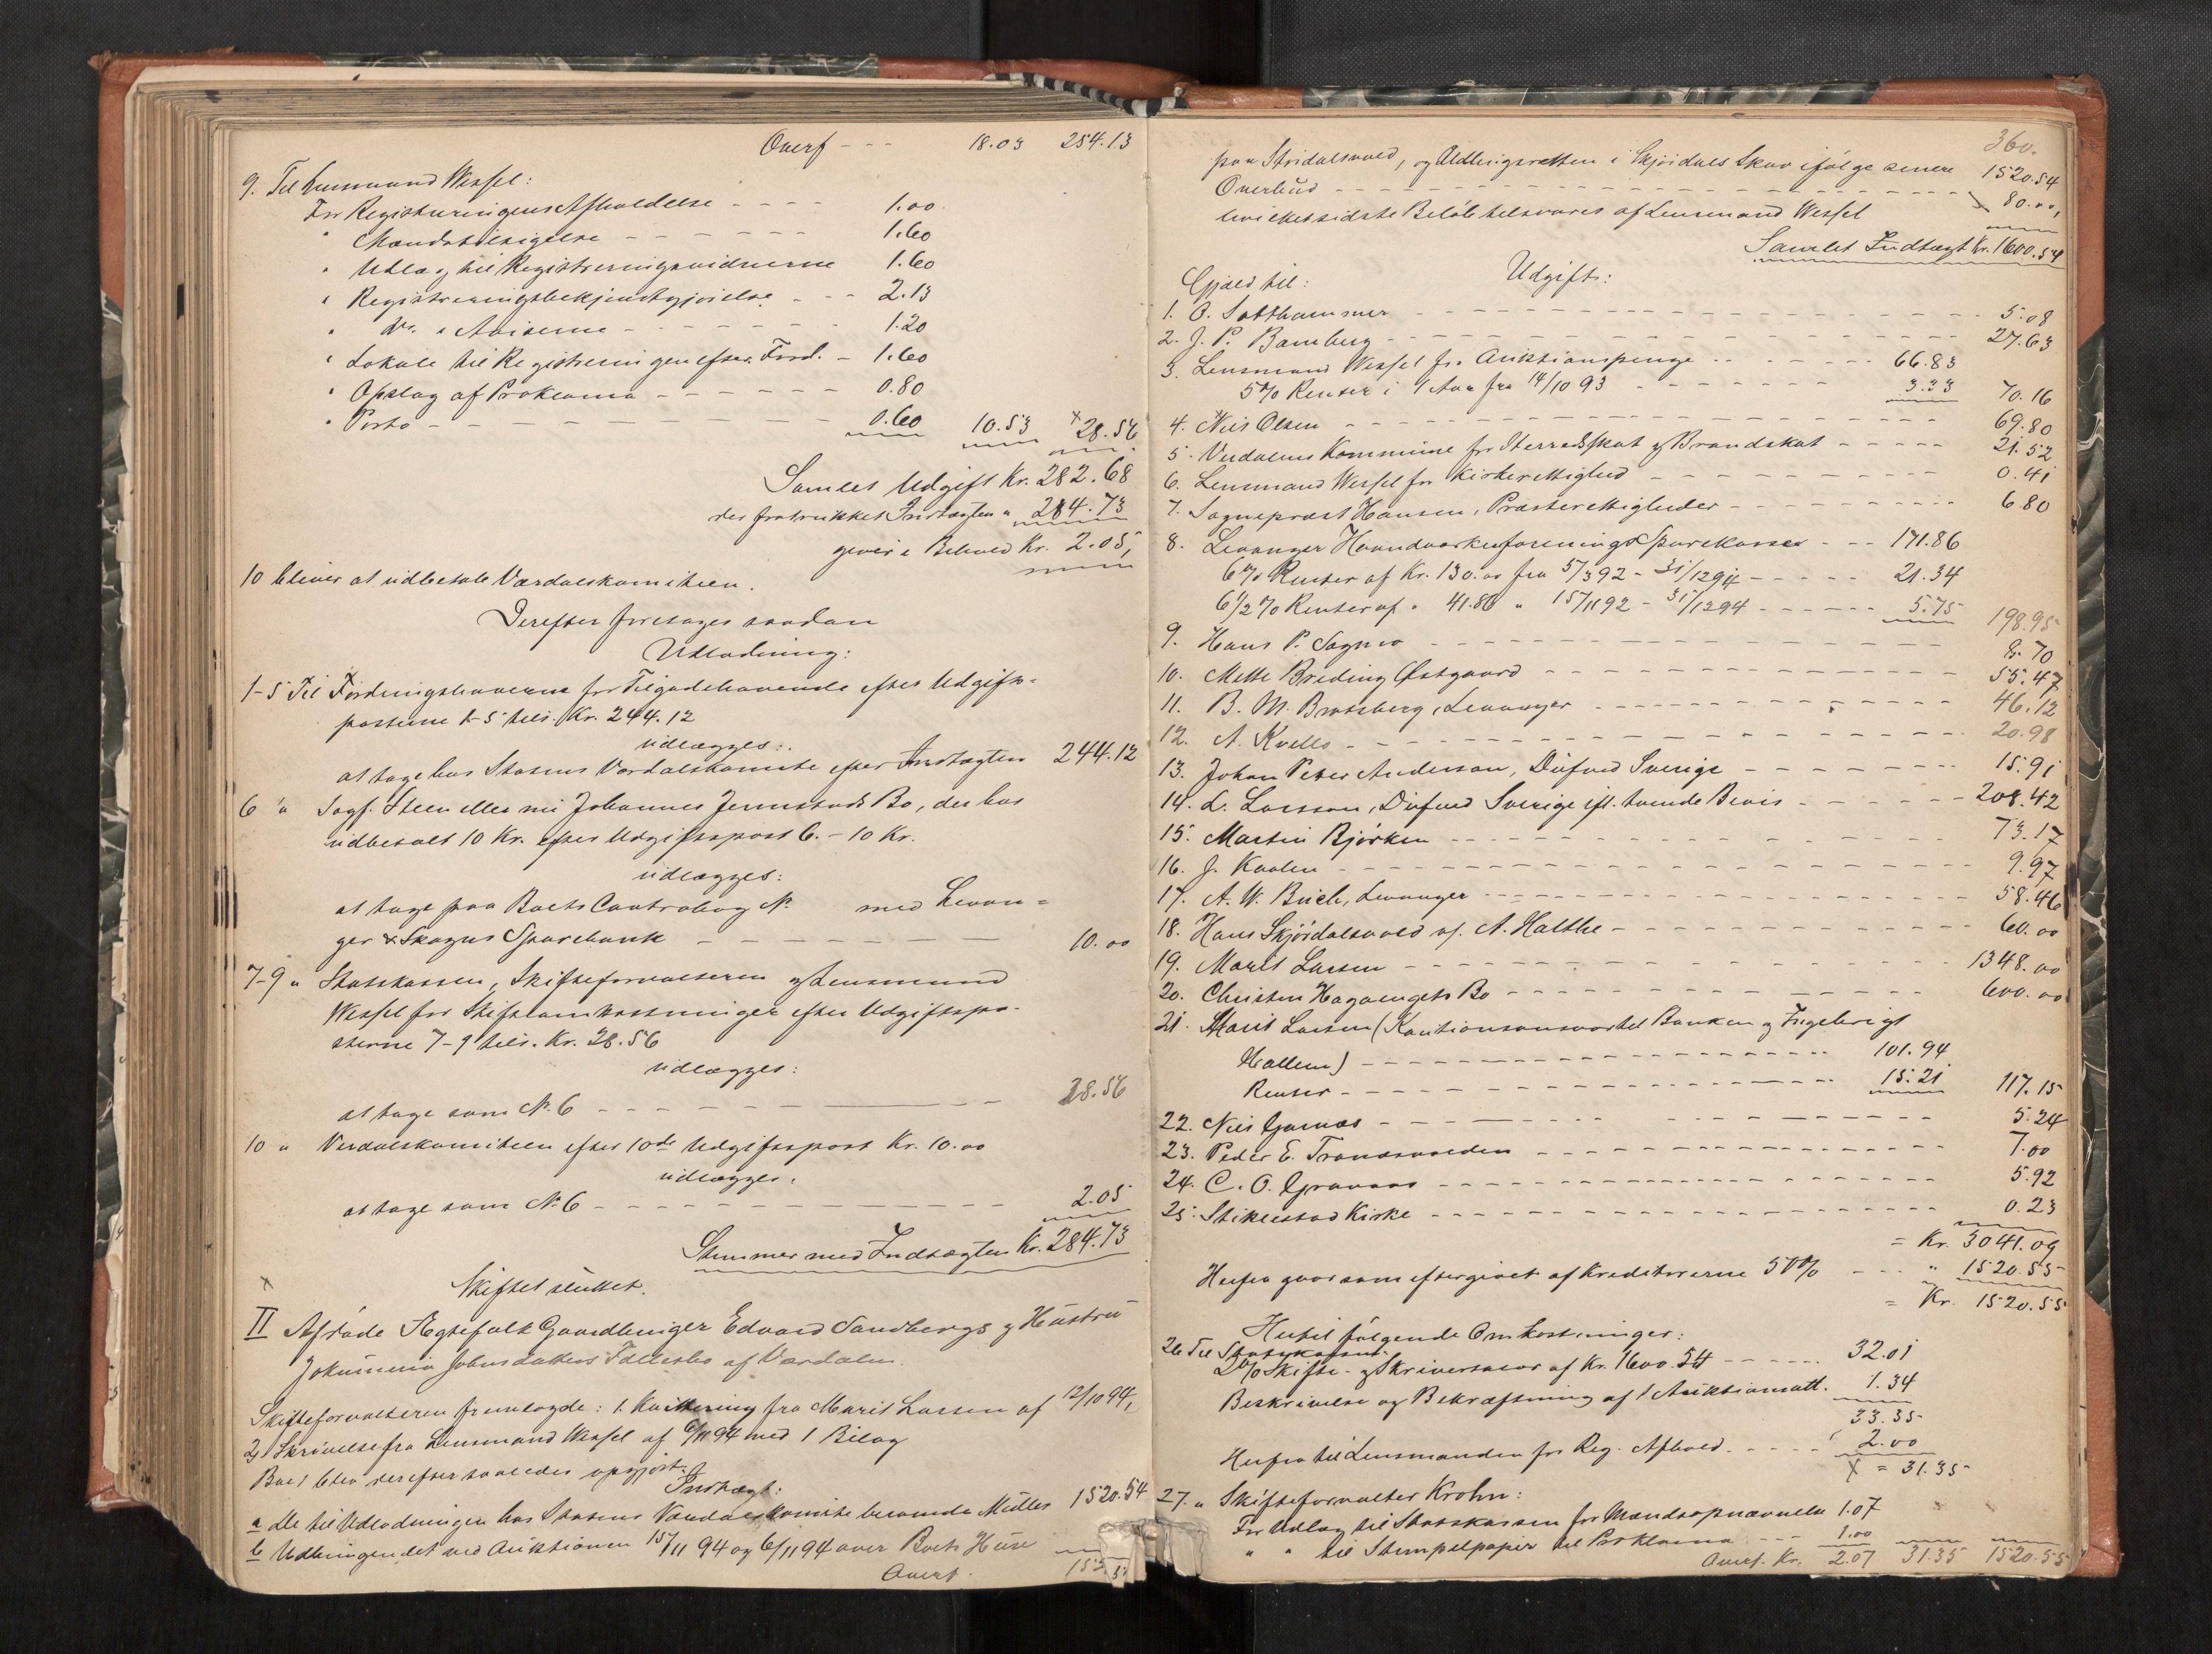 Overf - - - 18.03 254.13
9. Til Lensmand Wessel:
For Registreringens Afholdelse - - - - 1.00
" Mændstilsigelse - - - - - - 1.60
" Udlæg til Registreringsvidnerne 1.60
" Registreringsbekjendtgjørelse - - - 2.13
" do. i Aviserne - - - - - - - 1.20
" Lokale til Registreringen efter Ford. - 1.60
" Opslag af Proklama - - - - - 0.80
" Porto - - - - - - - - - 0.60 10.53 28.56
Samlet Udgift Kr. 282.68
der fratrukket Indtægten " 284.73
giver i Behold Kr. 2.05,
10 bliver at udbetale Værdalskomiteen.
Derefter foretoges saadan
Udlodning:
1-5 Til Fordringshaverne for Tilgodehavende efter Udgifts-
posterne 1-5 tils. Kr. 244.12
udlægges:
at tage hos Statens Værdalskomite efter Indtægten 244.12
6 " Sagf. Steen eller nu Johannes Jermstads Bo, der har
udbetalt 10 Kr. efter Udgiftspost 6. - 10 Kr.
udlægges:
at tage paa Boets Contrabog No. med Levan=
ger & Skogns Sparebank - - - - - - 10.00
7-9 " Statskassen, Skifteforvalteren og Lensmand
Wessel for Skifteomkostninger efter Udgiftspo-
sterne 7-9 tils. Kr. 28.56
udlægges:
at tage som No. 6 - - - - - - - 28.56
10 " Verdalskomiteen efter 10de Udgiftspost Kr. 10.00
udlægges:
at tage som No. 6 - - - - - - - - - - - 2.05
Stemmer med Indtægten Kr. 284.73
Skiftet sluttet.
II Afdøde Ægtefolk Gaardbruger Edvard Sandbergs og Hustru
Johnsdatters Fællesbo af Værdalen.
Skifteforvalteren fremlagde: 1. Kvittering fra Marit Larsen af 12/10 94,
2, Skrivelse fra Lensmand Wessel af 6/11 94 med 1 Bilag
Boet blev derefter saaledes opgjort:
Indtægt:
a De til Udlodningen hos Statens Værdalskomite beroende Midler 1520.54
b Udbringendet ved Auktionen 15/11 94 og 6/11 94 over Boets Huse
Overf.
360.
paa Stridalsvold, og Udbringsretten i Skjördals Skov ifølge senere 1520.54
Overbud - - - - - - - - - - - - - - - - - - - - 80.00,
hvilket sidste Beløb tilsvares af Lensmand Wessel
Samlet Indtægt Kr. 1600.54
Udgift:
Gjæld til:
1. O. Solthammer - - - - - - - - - - - - - - - - - - 5.08
2. J. P. Bamberg - - - - - - - - - - - - - - - - - - 27.63
3. Lensmand Wessel for Auktionspenge - - - - - - 66.83
5% Renter i 1 Aar fra 14/10 93 - - - - - - - 3.33 70.16
4. Nils Olsen - - - - - - - - - - - - - - - - - - 69.80
5. Verdalens Kommune for Herredsskat og Brandskat - - - - - 21.52
6. Lensmand Wessel for Kirkerettighed - - - - - - - - 0.41
7. Sogneprest Hansen, Presterettigheder - - - - - - - - - 6.80
8. Levanger Haandværkerforenings Sparekasse - - - 171.86
6% Renter af Kr. 130.00 fra 5/3 92 - 31/12 94 - - - - - 21.34
6 1/2% Renter af " 41.86 " 15/11 92 - 31/12 94 - - - - - - 5.75 198.95
9. Hans P. Sagmo - - - - - - - - - - - - - - - 8.70
10. Mette Breding Østgaard - - - - - - - - - - - - - 55.47
11. B. M. Bratsberg, Levanger - - - - - - - - - - - - 46.12
12. A. Kvello - - - - - - - - - - - - - - - - - - 20.98
13. Johan Peter Anderson, Dufved Sverige - - - - - - - - 15.91
14. L. Larsson, Dufved Sverige ifl. tvende Bevis - - - - - - 208.42
15. Martin Bjørken - - - - - - - - - - - - - - - - 73.17
16. J. Kvalen - - - - - - - - - - - - - - - - - - 9.97
17. A. W. Buch, Levanger - - - - - - - - - - - - - - 58.46
18. Hans Skjördalsvold af. A. Holthe - - - - - - - - - - 60.00
19. Marit Larsen - - - - - - - - - - - - - - - - - 1348.00
20. Christen Hagaengets Bo - - - - - - - - - - - - - 600.00
21. Marit Larsen (Kautionsansvar til Banken og Ingebrigt
Hallem) - - - - - - - - - - - - - - - - - 101.94
Renter - - - - - - - - - - - - - - - - - - 15.21 117.15
22. Nils Garnæs - - - - - - - - - - - - - - - - - 5.24
23. Peder E. Tronæsvolden - - - - - - - - - - - - - 7.00
24. C. O. Gravaas - - - - - - - - - - - - - - - - - 5.92
25. Stiklestad Kirke - - - - - - - - - - - - - - - - 0.23
= Kr. 3041.09
Herfra gaar som eftergivet af Kreditorerne 50% - - - " 1520.55
= Kr. 1520.55
Hertil følgende Omkostninger:
26 Til Statskassen:
2% Skifte- og Skriversalær af Kr. 1600.54 - - - - - - 32.01
Beskrivelse og Bekræftning af 1 Auktionsatt. 1.34
33.35
Herfra til Lensmanden for Reg. Afhold. - - - - 2.00
X = 31.35
27. " Skifteforvalter Krohn:
For Udlæg til Statskassen for Mændsopnævnelse 1.07
" " til Stempelpapir til Proklama - - - 1.00
Overf. Kr. 2.07 31.35 1520.55